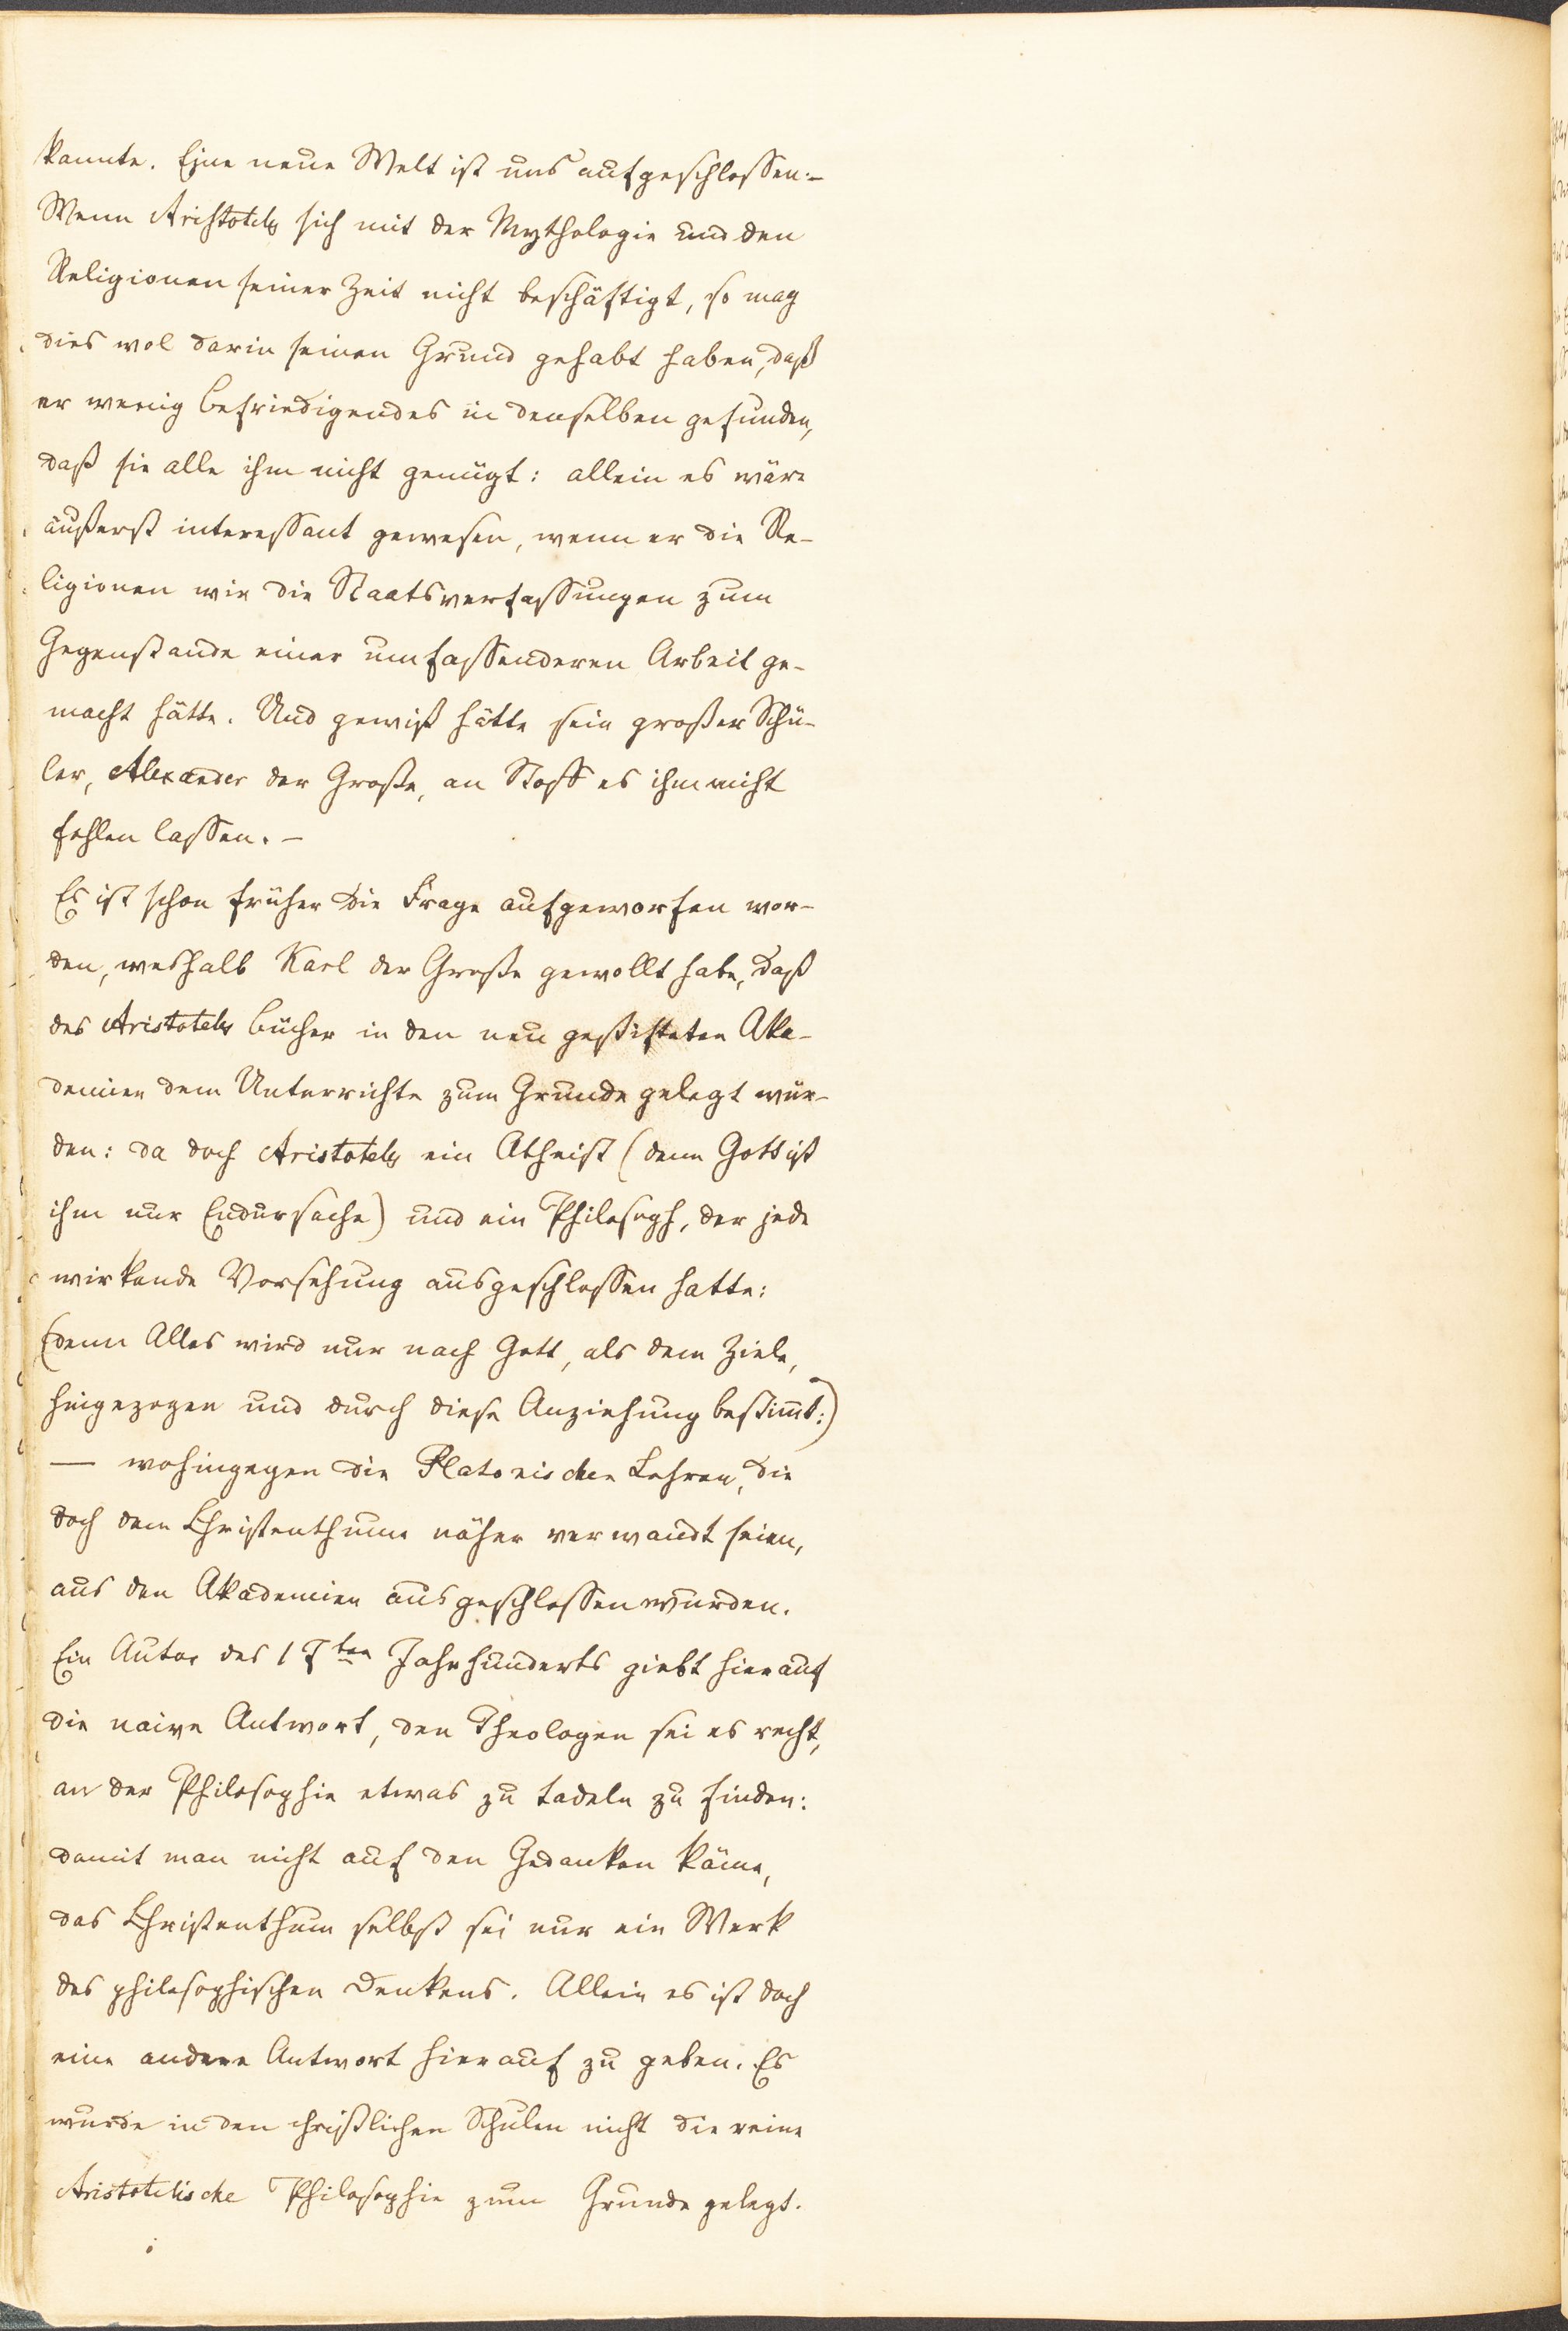 kannte. Eine neue Welt ist uns aufgeschlossen. –
Wenn Aristoteles sich mit der Mythologie und den
Religionen seiner Zeit nicht beschäftigt, so mag
dies wol darin seinen Grund gehabt haben, daß
er wenig befriedigendes in denselben gefunden,
daß sie alle ihm nicht genügt: allein es wäre
äußerst interessant gewesen, wenn er die Re-
ligionen wie die Staatsverfassungen zum
Gegenstande einer umfassenderen Arbeit ge-
macht hätte. Und gewiß hätte sein großer Schü-
ler, Alexander der Große, an Stoff es ihm nicht
fehlen lassen. –
Es ist schon früher die Frage aufgeworfen wor-
den, weshalb Karl der Große gewollt habe, daß
des Aristoteles Bücher in den neu gestifteten Aka-
demien dem Unterrichte zum Grunde gelegt wür-
den: da doch Aristoteles ein Atheist (denn Gott ist
ihm nur Endursache) und ein Philosoph, der jede
wirkende Vorsehung ausgeschlossen hatte:
(denn Alles wird nur nach Gott, als dem Ziele,
hingezogen und durch diese Anziehung bestim̄t:)
— wohingegen die Platonischen Lehren, die
doch dem Christenthume näher verwandt seien,
aus den Akademien ausgeschlossen wurden.
Ein Autor des 17ten Jahrhunderts giebt hierauf
die naive Antwort, den Theologen sei es recht,
an der Philosophie etwas zu tadeln zu finden:
damit man nicht auf den Gedanken käme,
das Christenthum selbst sei nur ein Werk
des philosophischen Denkens. Allein es ist doch
eine andere Antwort hierauf zu geben. Es
wurde in den christlichen Schulen nicht die reine
Aristotelische Philosophie zum Grunde gelegt.